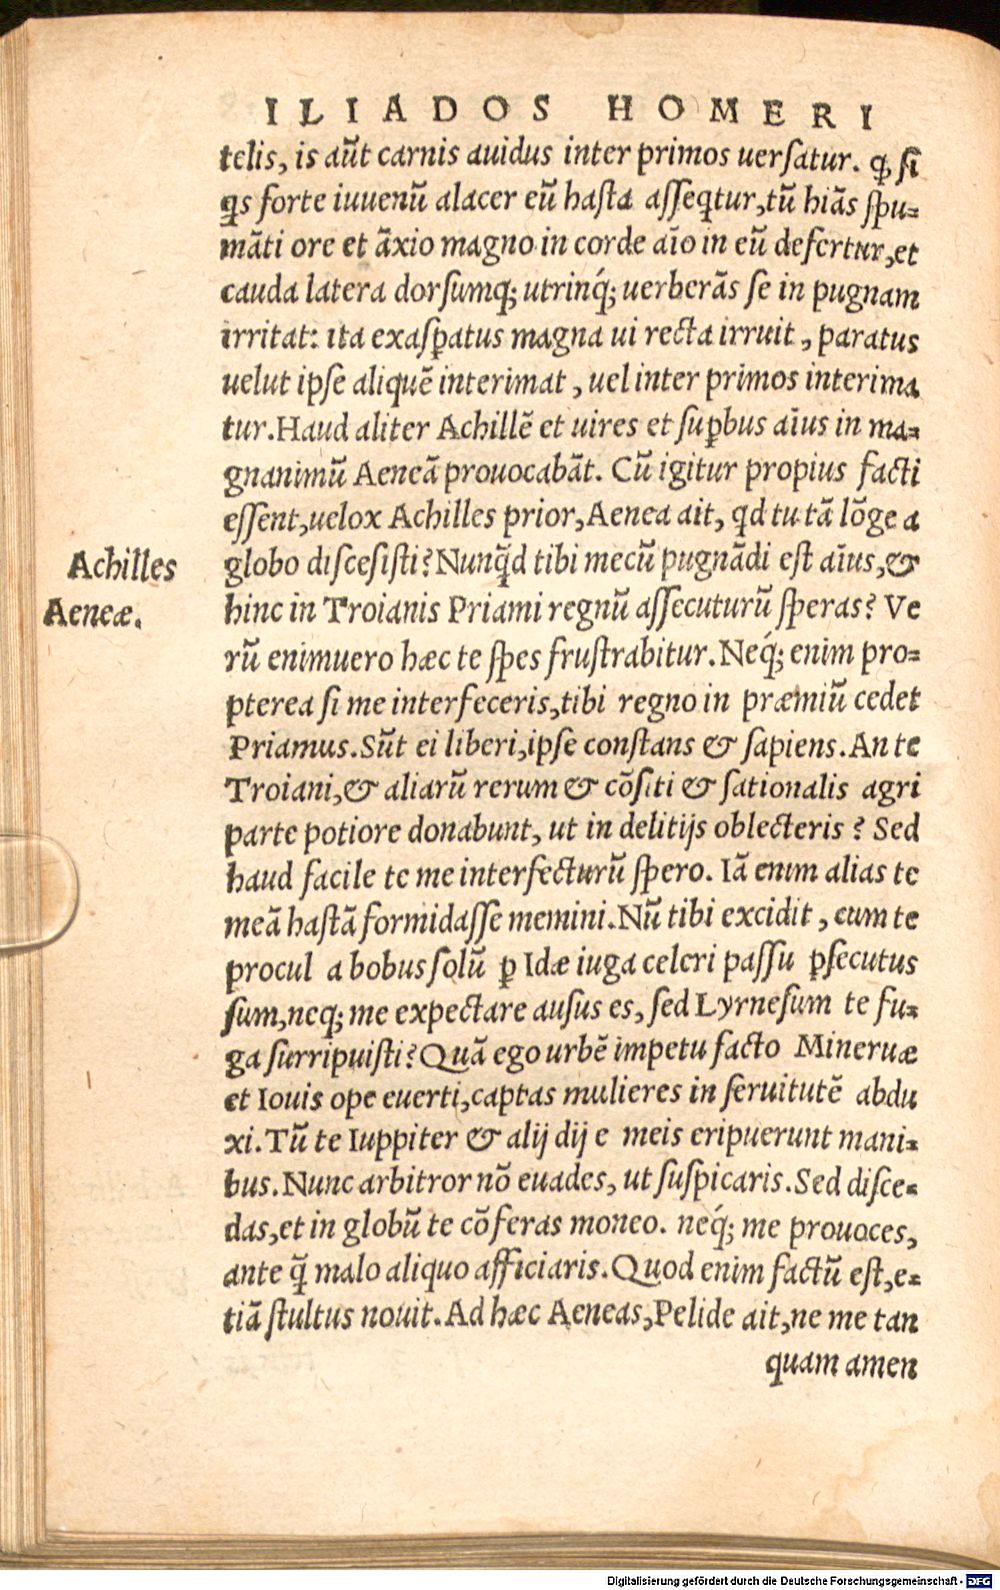 ILIADOS HOMERI
telis, is aūt carnis auidus inter primos uersatur. ꝙ si
q̨s forte iuuenū alacer eū hasta asseq̃tur,tū hiās spu=
māti ore et āxio magno in corde aīo in eū defertur,et
cauda latera dorsumq́; utrinq́; uerberās se in pugnam
irritat: ita exasꝑatus magna ui recta irruit, paratus
uelut ipse aliquē interimat, uel inter primos interima
tur.Haud aliter Achillē et uires et suꝑbus aīus in ma=
gnanimū Aeneā prouocabāt. Cū igitur propius facti
essent,uelox Achilles prior,Aenea ait, qd tu tā lōge a
Achilles
Aeneæ.
globo discesisti?Nunq̃d tibi mecū pugnādi est aīus,&
hinc in Troianis Priami regnū assecuturū speras? Ve
rū enimuero hæc te spes frustrabitur.Neq́; enim pro=
pterea si me interfeceris,tibi regno in præmiū cedet
Priamus.Sūt ei liberi,ipse constans & sapiens.An te
Troiani,& aliarū rerum & cōsiti & sationalis agri
parte potiore donabunt, ut in delitijs oblecteris? Sed
haud facile te me interfecturū spero. Iā enim alias te
meā hastā formidasse memini.Nū tibi excidit, cum te
procul a bobus solū ꝑ Idæ iuga celeri passu ꝑsecutus
sum,neq; me expectare ausus es, sed Lyrnesum te fu=
ga surripuisti?Quā ego urbē impetu facto Mineruæ
et Iouis ope euerti,captas mulieres in seruitutē abdu
xi.Tū te Iuppiter & alij dij e meis eripuerunt mani=
bus.Nunc arbitror nō euades, ut suspicaris.Sed disce=
das,et in globū te cōferas moneo. neq́; me prouoces,
ante q̃ malo aliquo afficiaris.Quod enim factū est,e=
tiā stultus nouit.Ad hæc Aeneas,Pelide ait,ne me tan
quam amen
Digitalisierung gefördert durch die Deutsche Forschungsgemeinschaft - DFG